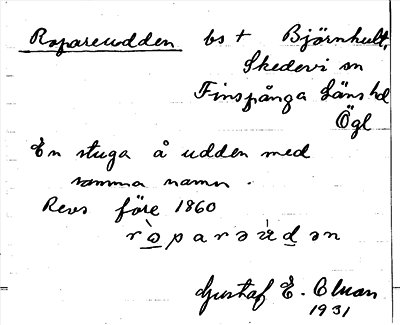 Ropareudden bs t Björnhult,
Skedevi sn
Finspånga Läns hd
Ögl
En stuga å udden med
samma namn.
Revs före 1860
Gustaf E.
1931